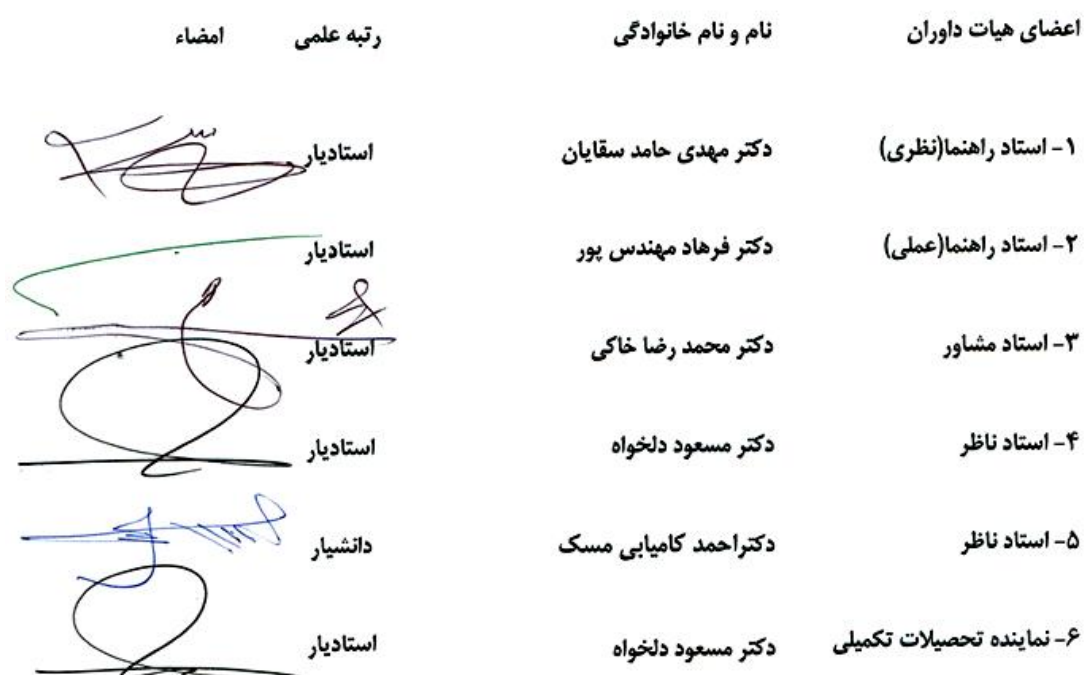 اعضای هیات داوران نام و نام خانوادگی رتبه علمی امضاء
۱- استاد راهنما(نظری) دکتر مهدی حامد سقایان استادیار
۲- استاد راهنما(عملی) دکتر فرهاد مهندس پور استادیار
۳- استاد مشاور دکتر محمد رضا خاکی استادیار
۴- استاد ناظر دکتر مسعود دلخواه استادیار
۵- استاد ناظر دکتراحمد کامیابی مسک دانشیار
۶- نماینده تحصیلات تکمیلی دکتر مسعود دلخواه استادیار